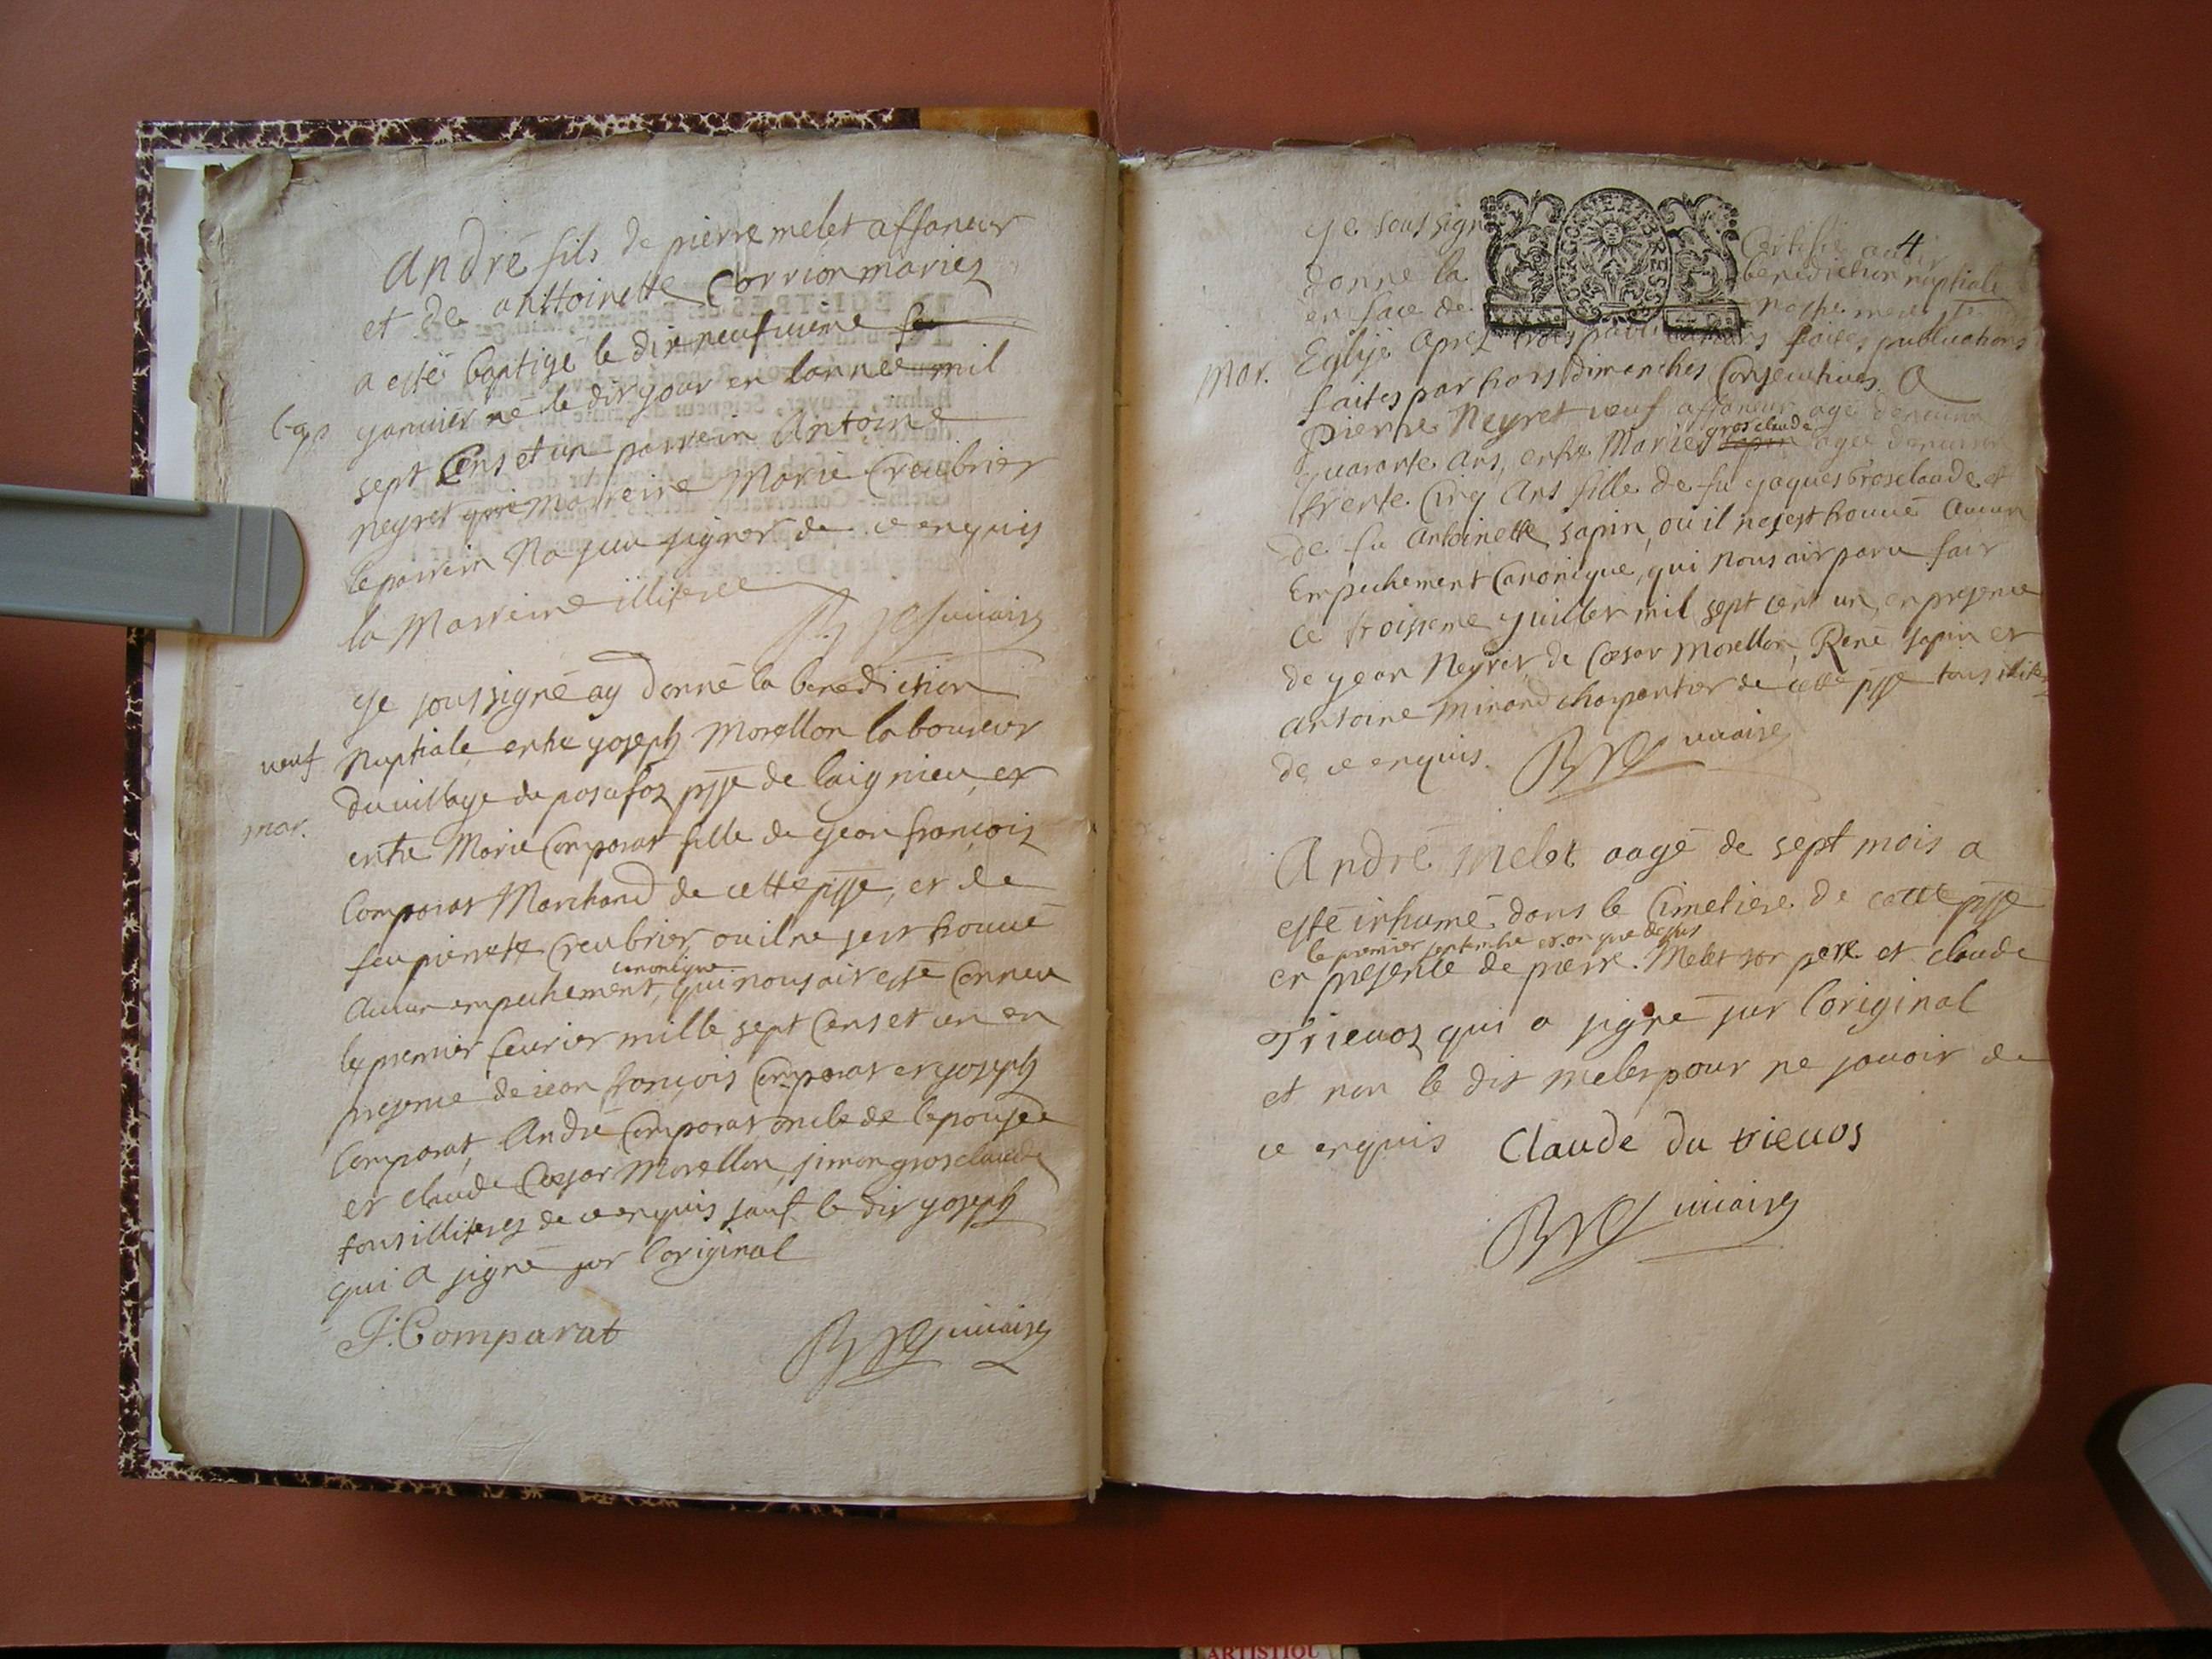 André fils de pierre melet affaneur
et de anttoinette Corrion mariez
a esté baptisé le dixneufuieme
bap
januier né le dix jour en lannee mil
sept Cens et un parrein Antoine
neyret marreine Marie Creubrier
le parrein Na sceu signer de ce enquis
la Marreine illiteree
uicaire
Je soussigné ay donné la benediction
ueuf
Nuptiale entre joseph Morellon laboureur
du uillage de posafoz psse de laignieu, et
mar.
entre Marie Comparat fille de jean françois
Comparat Marchand de cette psse, et de
feu pierrette Creubrier, ou il ne sest trouué
canonique
Aucun empechement, qui nous ait esté Conneu
le premier feurier mille sept Cens et un en
presence de jean françois Comparat et joseph
Comparat, André Comparat oncle de lepousee
et claude Cæsar Morellon, simon grosclaude
tous illiteres de ce enquis sauf le dit joseph
qui a signé sur loriginal
J. Comparat
uicaire
4
Je soussign Certifie auoir
donne la benediction nuptiale
en face de nostre mere Ste
Mar.
Eglise Apres trois publications
faites par trois dimanches Consecutiues. A
pierre Neyret ueuf affaneur agé denuiron
grosclaude
quarante ans, entre Marie sapin agée denuiron
trente Cinq Ans fille de fu jaques Grosclaude et
de fu Antoinette sapin, ou il ne sest trouué Aucun
Empechement Canonique, qui nous ait paru fait
Ce troisieme juillet mil sept cent un, en presence
de jean Neyret, de Cæsar Morellon, René sapin et
antoine minand charpentier de cette psse tous illiteres
de ce enquis.
uicaire
André Melet aagé de sept mois a
esté inhumé dans le Cimetiere de cette psse
le premier septembre et an que dessus
en presence de pierre Melet son pere et claude
Trieuoz qui a signé sur loriginal
et non le dit melet pour ne sauoir de
ce enquis Claude du trieuos
uicaire
ARTISTIQU